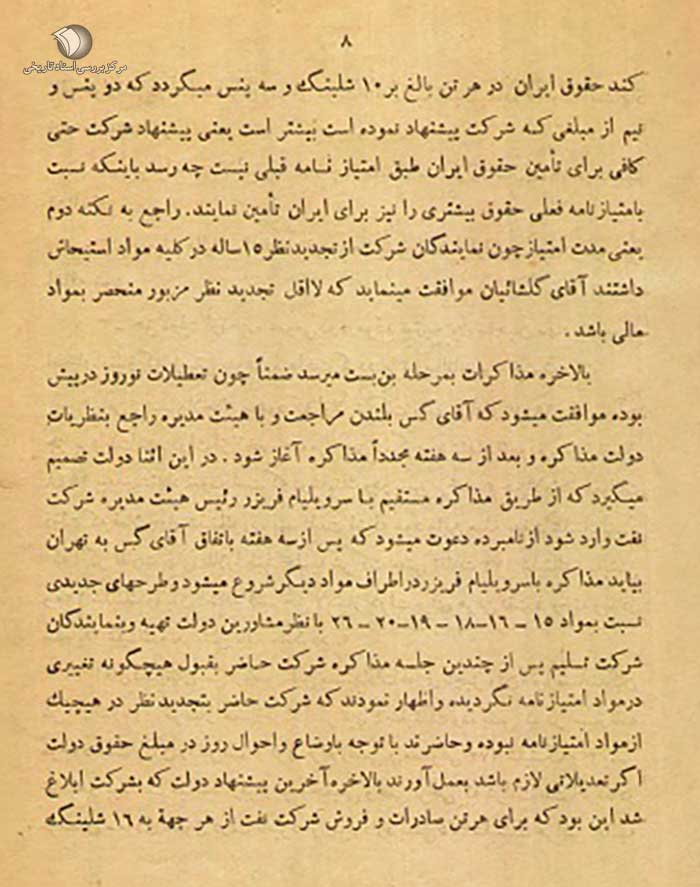 مرکز بررسی اسناد تاریخی
۸
کند حقوق ایران در هر تن بالغ بر ۱۰ شلینگ و سه پنس میگردد که دو پنس و
نیم از مبلغی که شرکت پیشنهاد نموده است بیشتر است یعنی پیشنهاد شرکت حتی
کافی برای تأمین حقوق ایران طبق امتیاز نامه قبلی نیست چه رسد باینکه نسبت
بامتیازنامه فعلی حقوق بیشتری را نیز برای ایران تأمین نمایند. راجع به نکته دوم
یعنی مدت امتیاز چون نمایندگان شرکت از تجدید نظر ۱۵ ساله در کلیه مواد استیحاش
داشتند آقای گلشائیان موافقت مینماید که لااقل تجدید نظر مزبور منحصر بمواد
مالی باشد .
بالاخره مذاکرات بمرحله بن‌بست میرسد ضمناً چون تعطیلات نوروز در پیش
بوده موافقت میشود که آقای گس بلندن مراجعت و با هیئت مدیره راجع بنظریات
دولت مذاکره و بعد از سه هفته مجدداً مذاکره آغاز شود . در این اثنا دولت تصمیم
میگیرد که از طریق مذاکره مستقیم با سرویلیام فریزر رئیس هیئت مدیره شرکت
نفت وارد شود از نامبرده دعوت میشود که پس از سه هفته باتفاق آقای گس به تهران
بیاید مذاکره با سرویلیام فریزر در اطراف مواد دیگر شروع میشود و طرحهای جدیدی
نسبت بمواد ۱۵ – ۱۶–۱۸ – ۱۹–۲۰ – ۲۶ با نظر مشاورین دولت تهیه و بنمایندگان
شرکت تسلیم پس از چندین جلسه مذاکره شرکت حاضر بقبول هیچگونه تغییری
در مواد امتیازنامه نگردیده و اظهار نمودند که شرکت حاضر بتجدید نظر در هیچیک
از مواد امتیازنامه نبوده و حاضرند با توجه باوضاع و احوال روز در مبلغ حقوق دولت
اگر تعدیلاتی لازم باشد بعمل آورند بالاخره آخرین پیشنهاد دولت که بشرکت ابلاغ
شد این بود که برای هر تن صادرات و فروش شرکت نفت از هر جهة به ۱۶ شلینگ